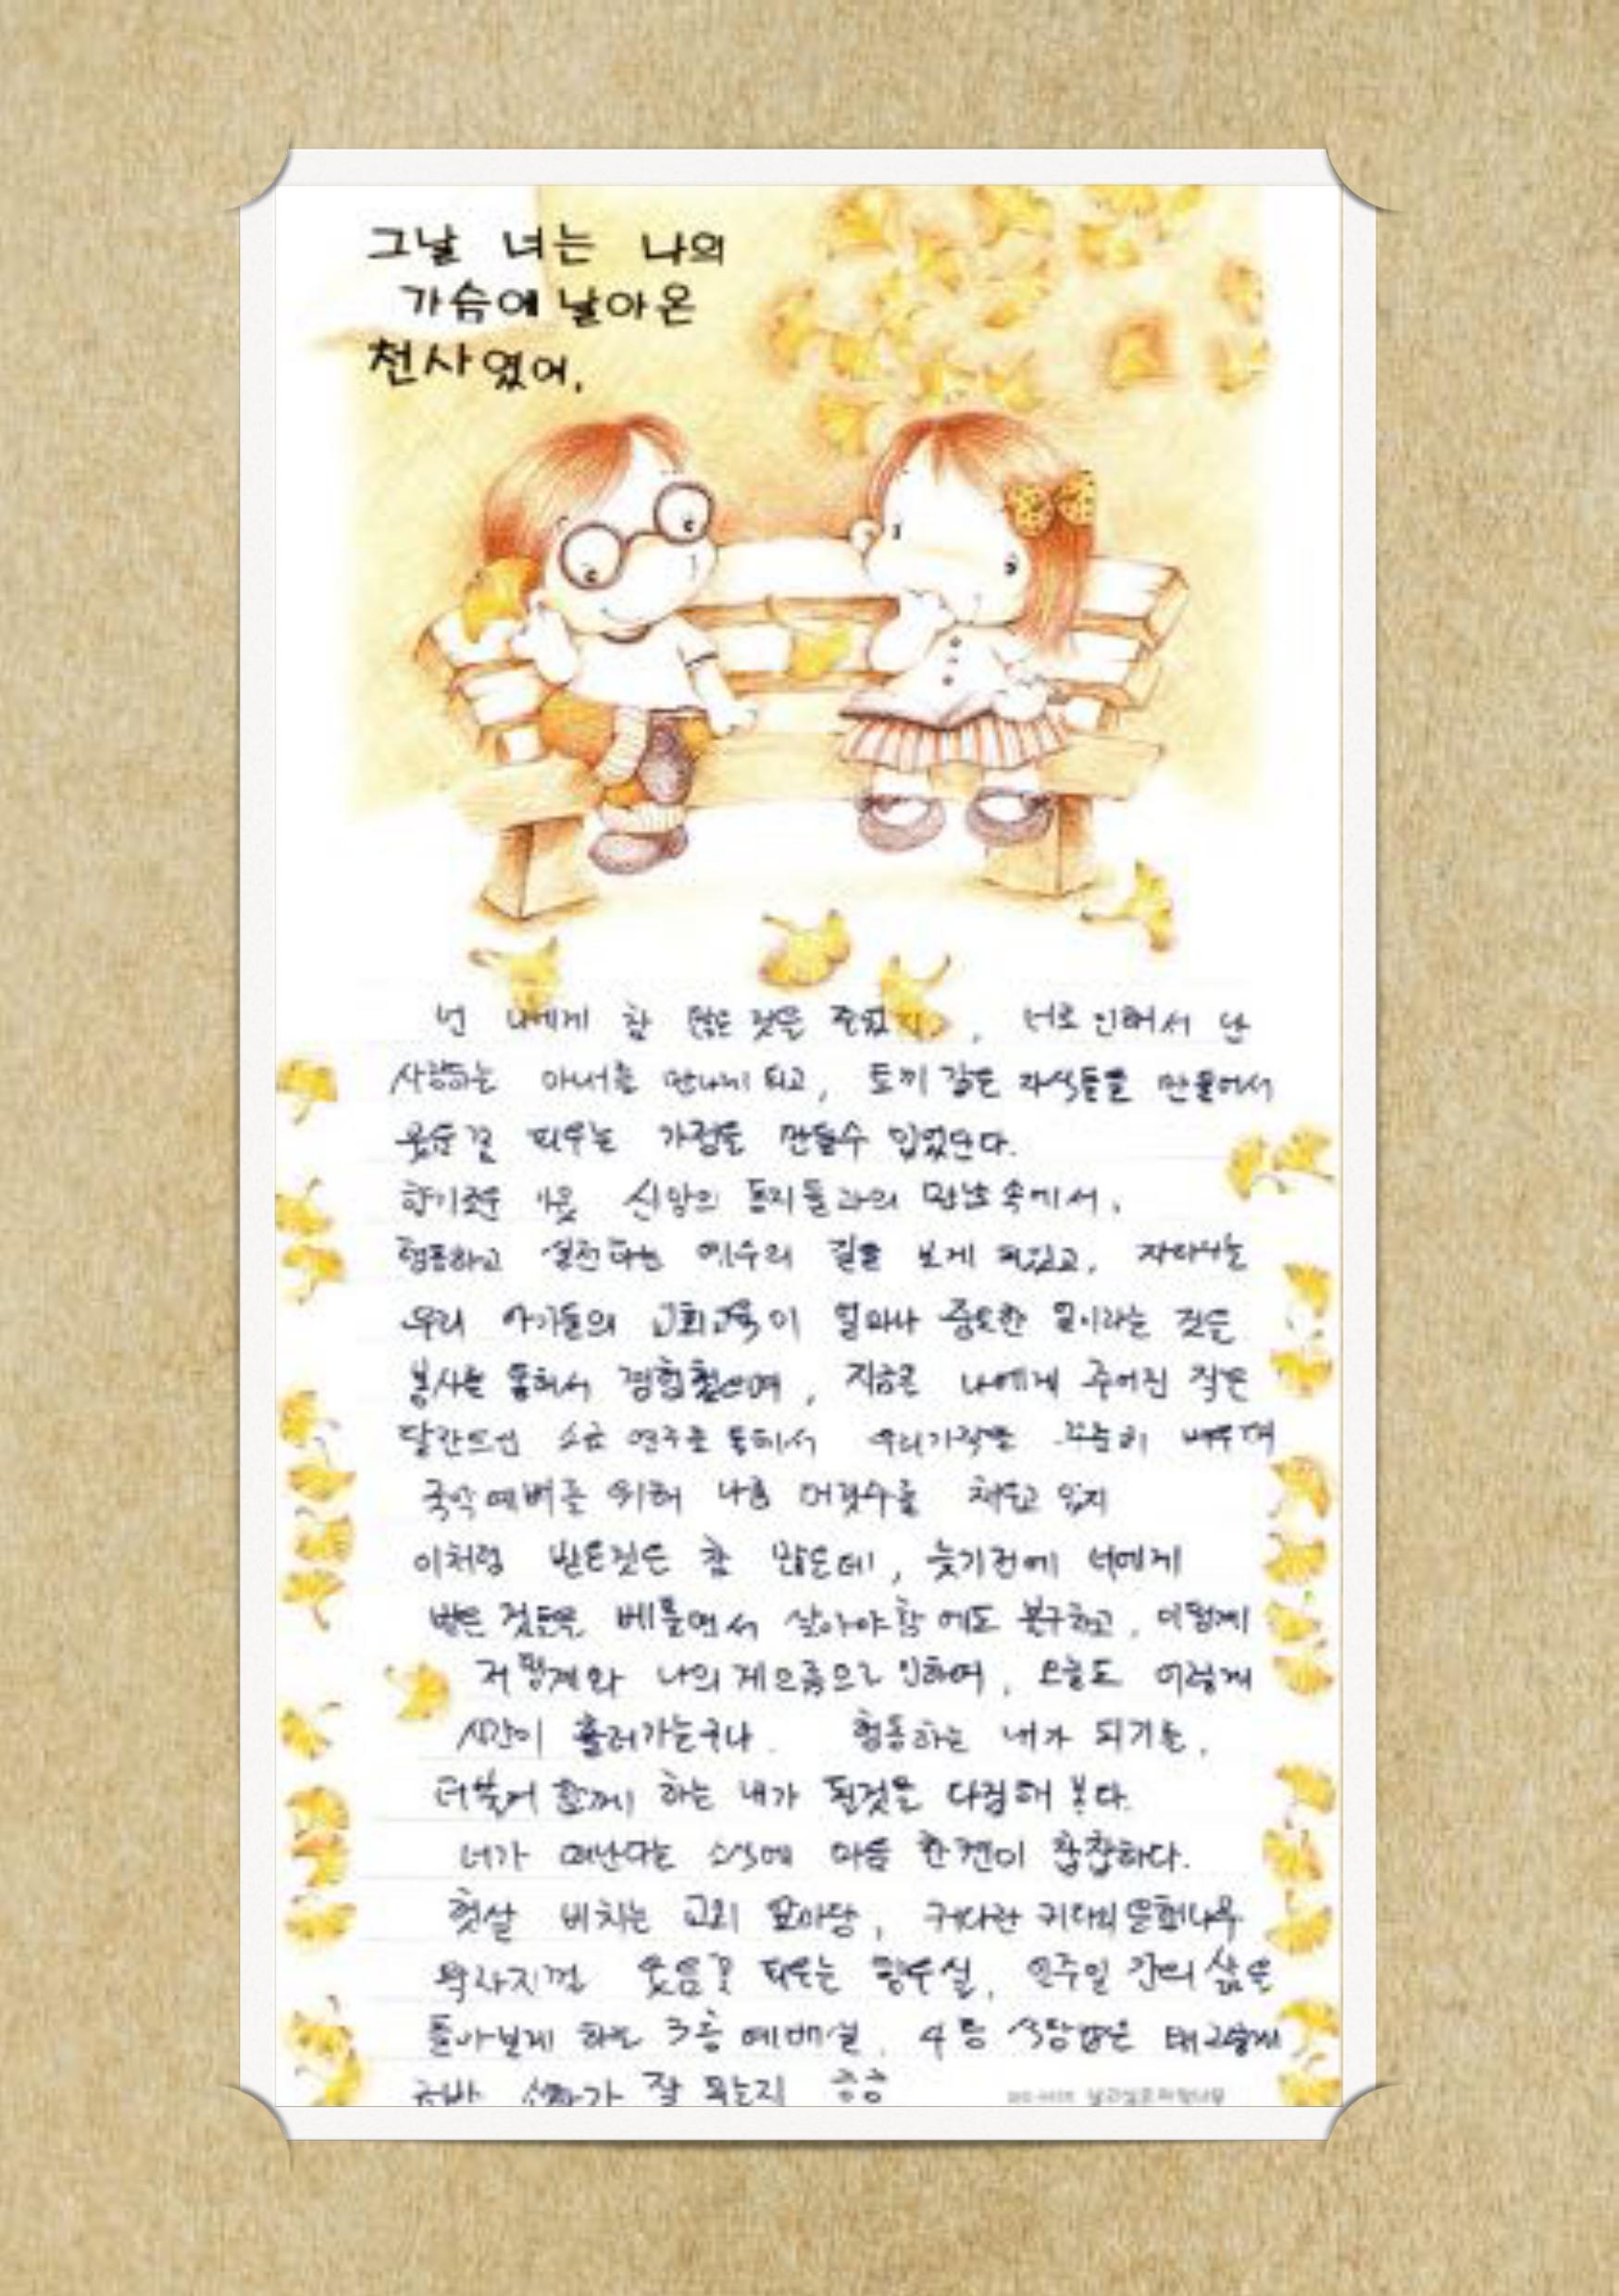 그날 너는 나의
가슴에 날아온
천사였어.
넌 내게 참 많은 것을 주었지, 너로 인해서 난
사랑하는 아내를 만나게 되고, 토끼 같은 자식들을 만들어서
웃음꽃 피우는 가정을 만들수 있었단다.
향기로운 신앙의 동지들과의 만남 속에서,
행동하고 실천하는 예수의 길을 보게 되었고, 자라나는
우리 아기들의 교회교육이 얼마나 중요한 일이라는 것을
봉사를 통해서 경험했으며, 지금은 나에게 주어진 작은
달란트인 소금 연주를 통해서 우리가락을 꾸준히 배우며
국악예배를 위해 나름 머릿수를 채우고 있지
이처럼 받은것은 참 많은데, 늦기전에 너에게
받은 것들을 베풀면서 살아야 함에도 불구하고, 이핑계
저핑계와 나의 게으름으로 인하여, 오늘도 이렇게
시간이 흘러가는구나. 행동하는 내가 되기를,
더불어 함께 하는 내가 될것을 다짐해 본다.
너가 떠난다는 소식에 마음 한켠이 참참하다.
햇살 비치는 교회 앞마당, 커다란 키다리 은행나무
왁자지껄 웃음꽃 피우는 향우실, 일주일 간의 삶을
돌아보게 하는 3층 예배실, 4층 식당밥은 왜그렇게
잘 먹는지 ㅎㅎ